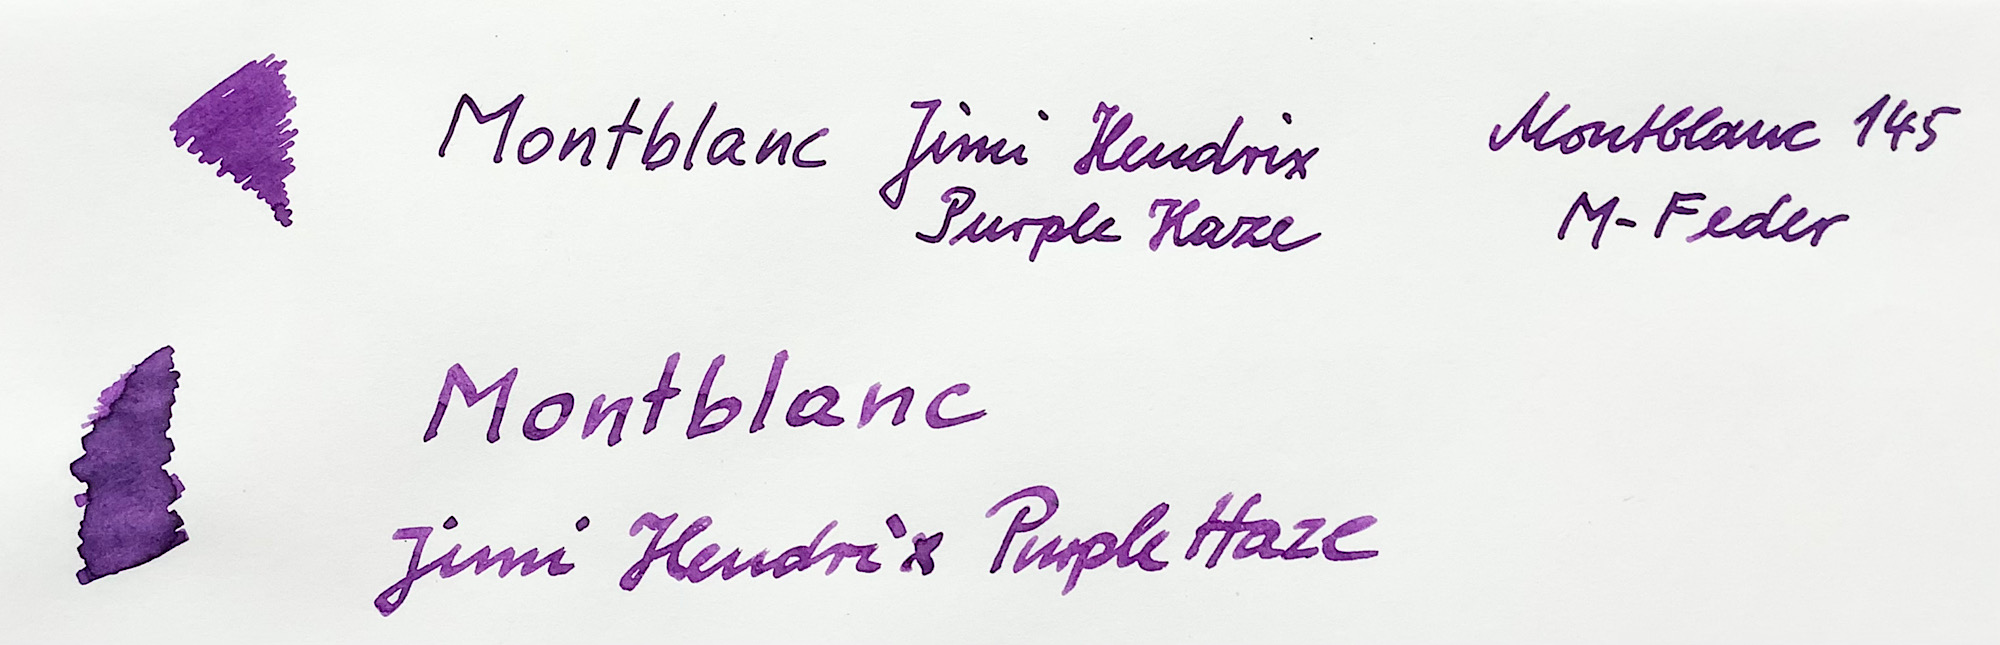 Montblanc Jimi Hendrix
Purple Haze
Montblanc 145
M-Feder
Montblanc
Jimi Hendrix Purple Haze